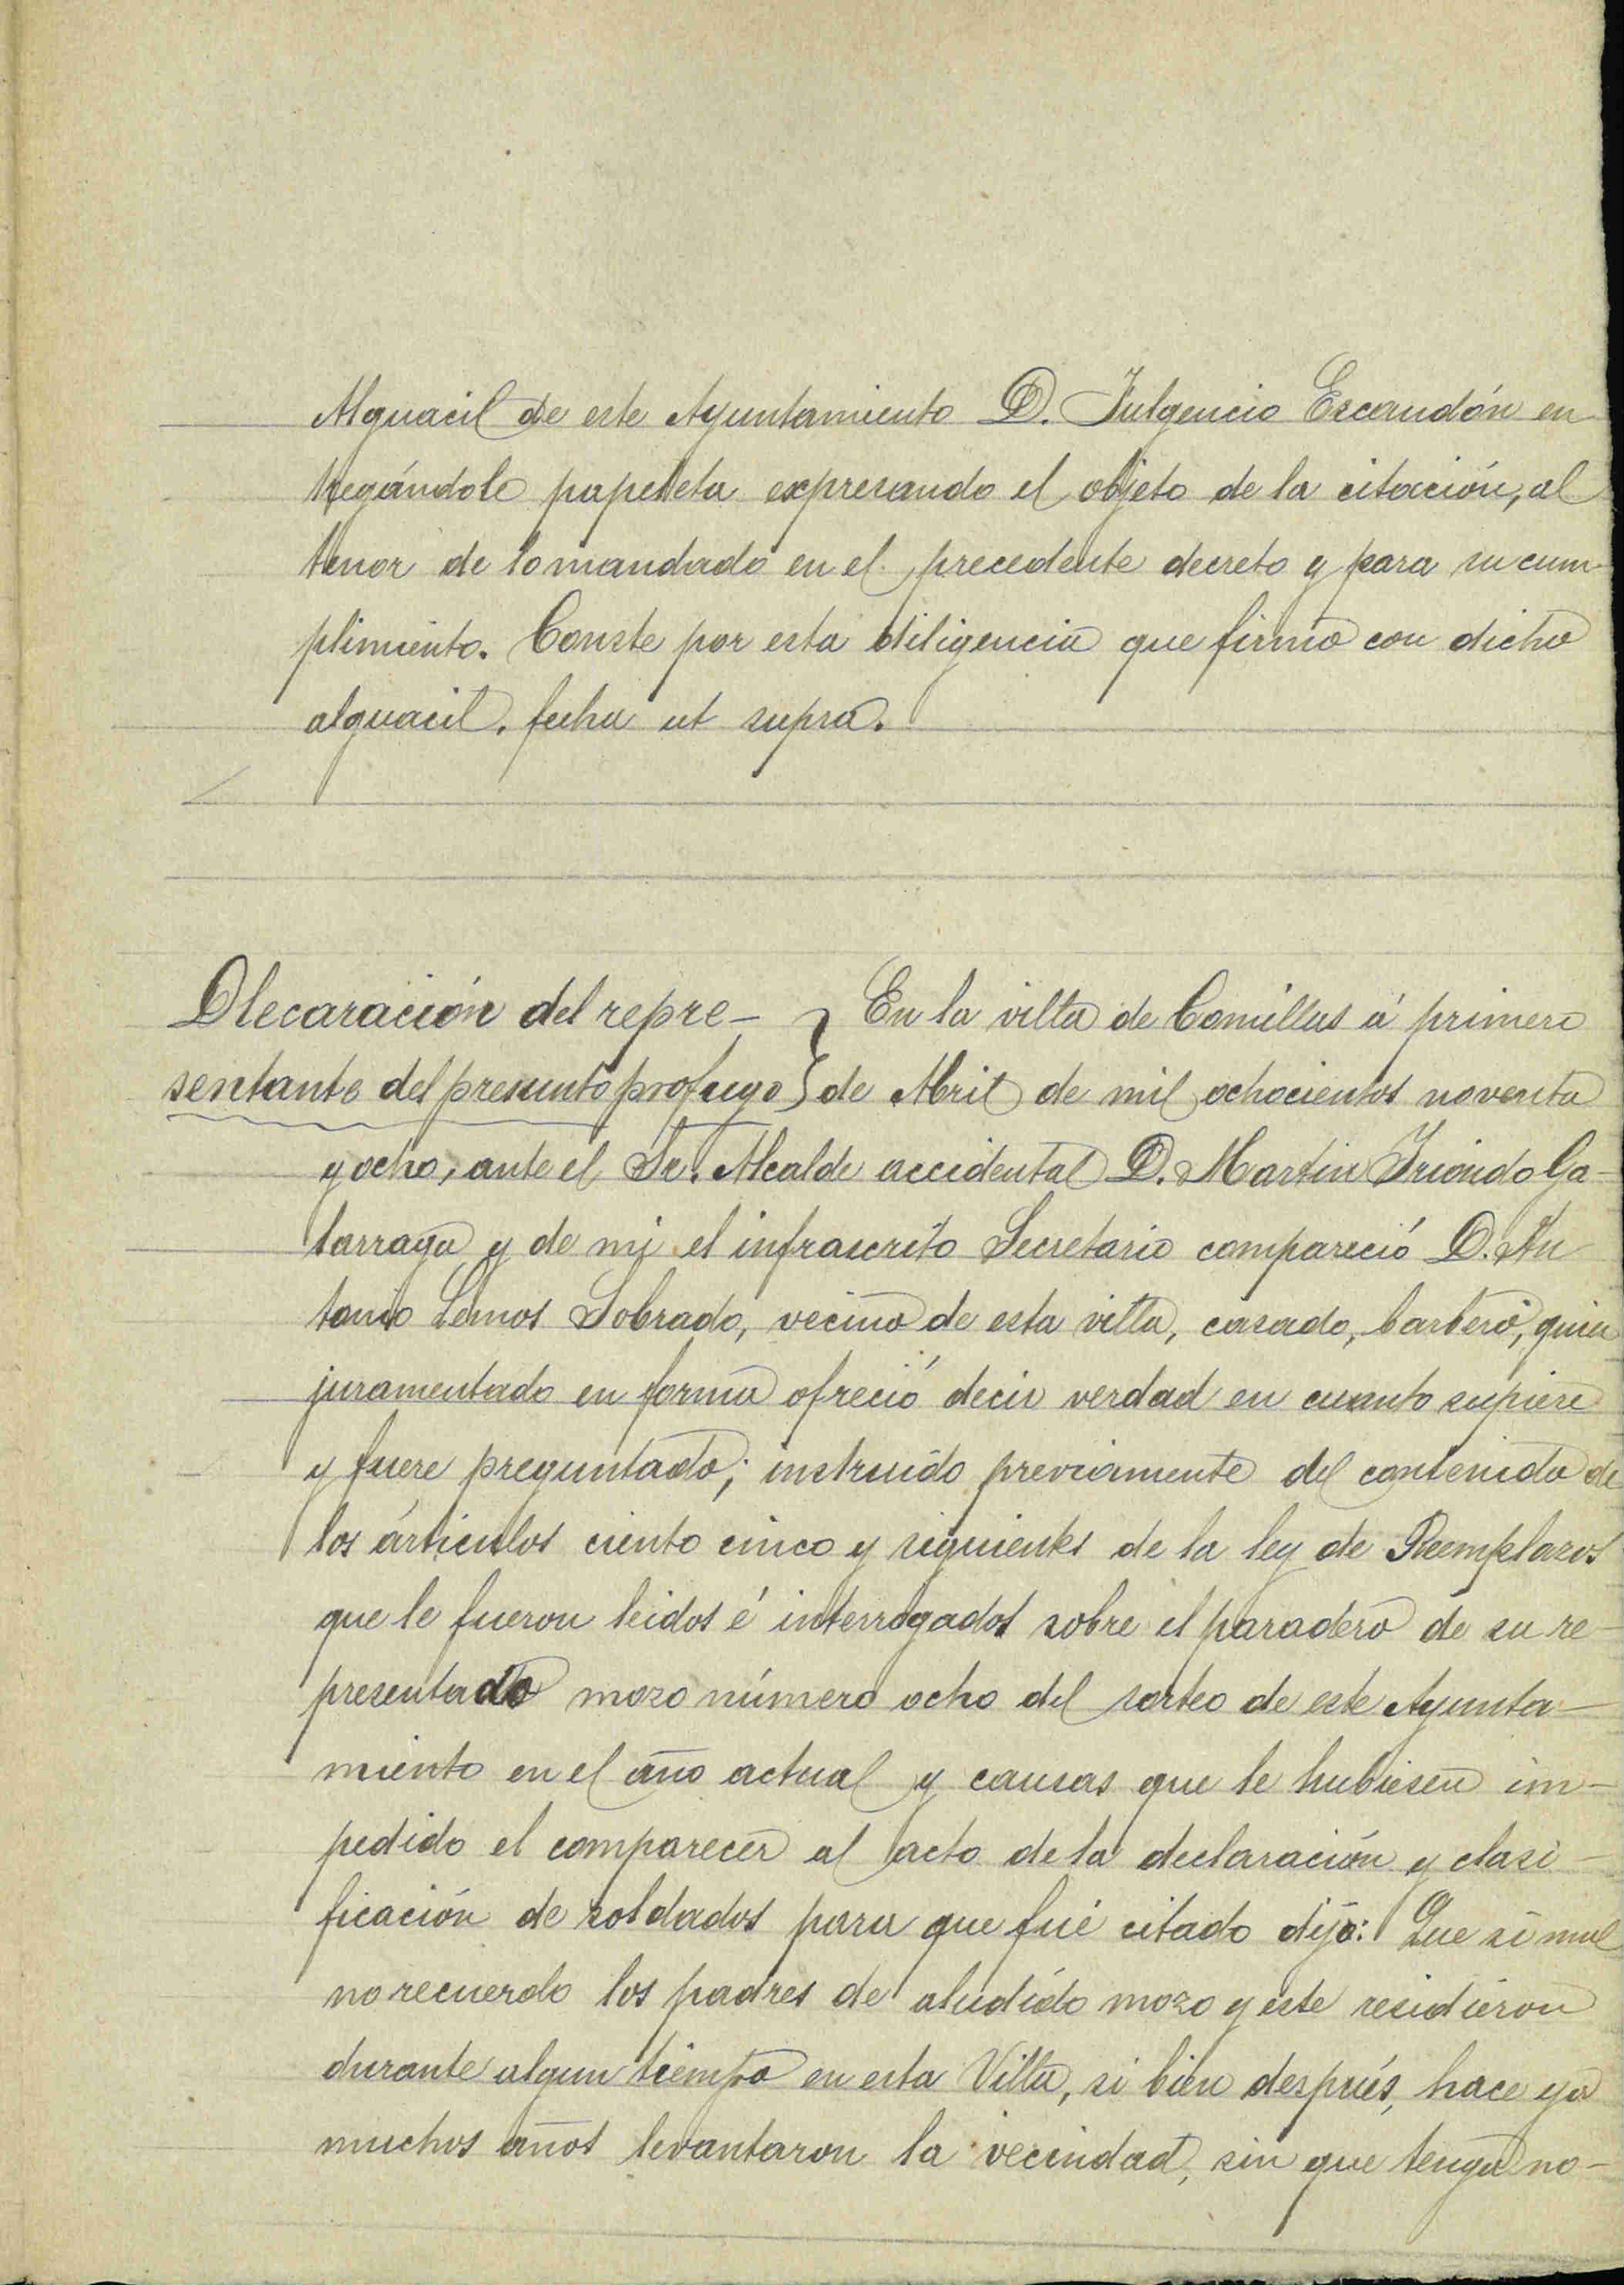 Alguacil de este Ayuntamiento D. Fulgencio Escandón en
tregándole papeleta expresando el objeto de la citación, al
tenor de lo mandado en el precedente decreto y para su cum-
plimiento. Conste por esta diligencia que firmo con dicho
alguacil. fecha ut supra.
Dlecaración del repre- } En la villa de Comillas á primero
sentante del presunto profugo } de Abril de mil ochocientos noventa
y ocho, ante el Sr. Alcalde accidental D. Martin Iriondo Ga-
larraga y de mi el infrascrito Secretario compareció D. An
tonio Lemos Sobrado, vecino de esta villa, casado, barbero, quien
juramentado en forma ofreció decir verdad en cuanto supiere
y fuere preguntado; instruido previamente del contenido de
los ártículos ciento cinco y siguientes de la ley de Reemplazos
que le fueron leidos é interrogados sobre el paradero de su re-
presentado mozo número ocho del sorteo de este Ayunta-
miento en el año actual y causas que le hubiesen im-
pedido el comparecer al acto de la declaración y clasi-
ficación de soldados para que fué citado dijo: Que si mal
no recuerdo los padres de aludido mozo y este residieron
durante algun tiempo en esta Villa, si bien después, hace ya
muchos años levantaron la vecindad, sin que tenga no-